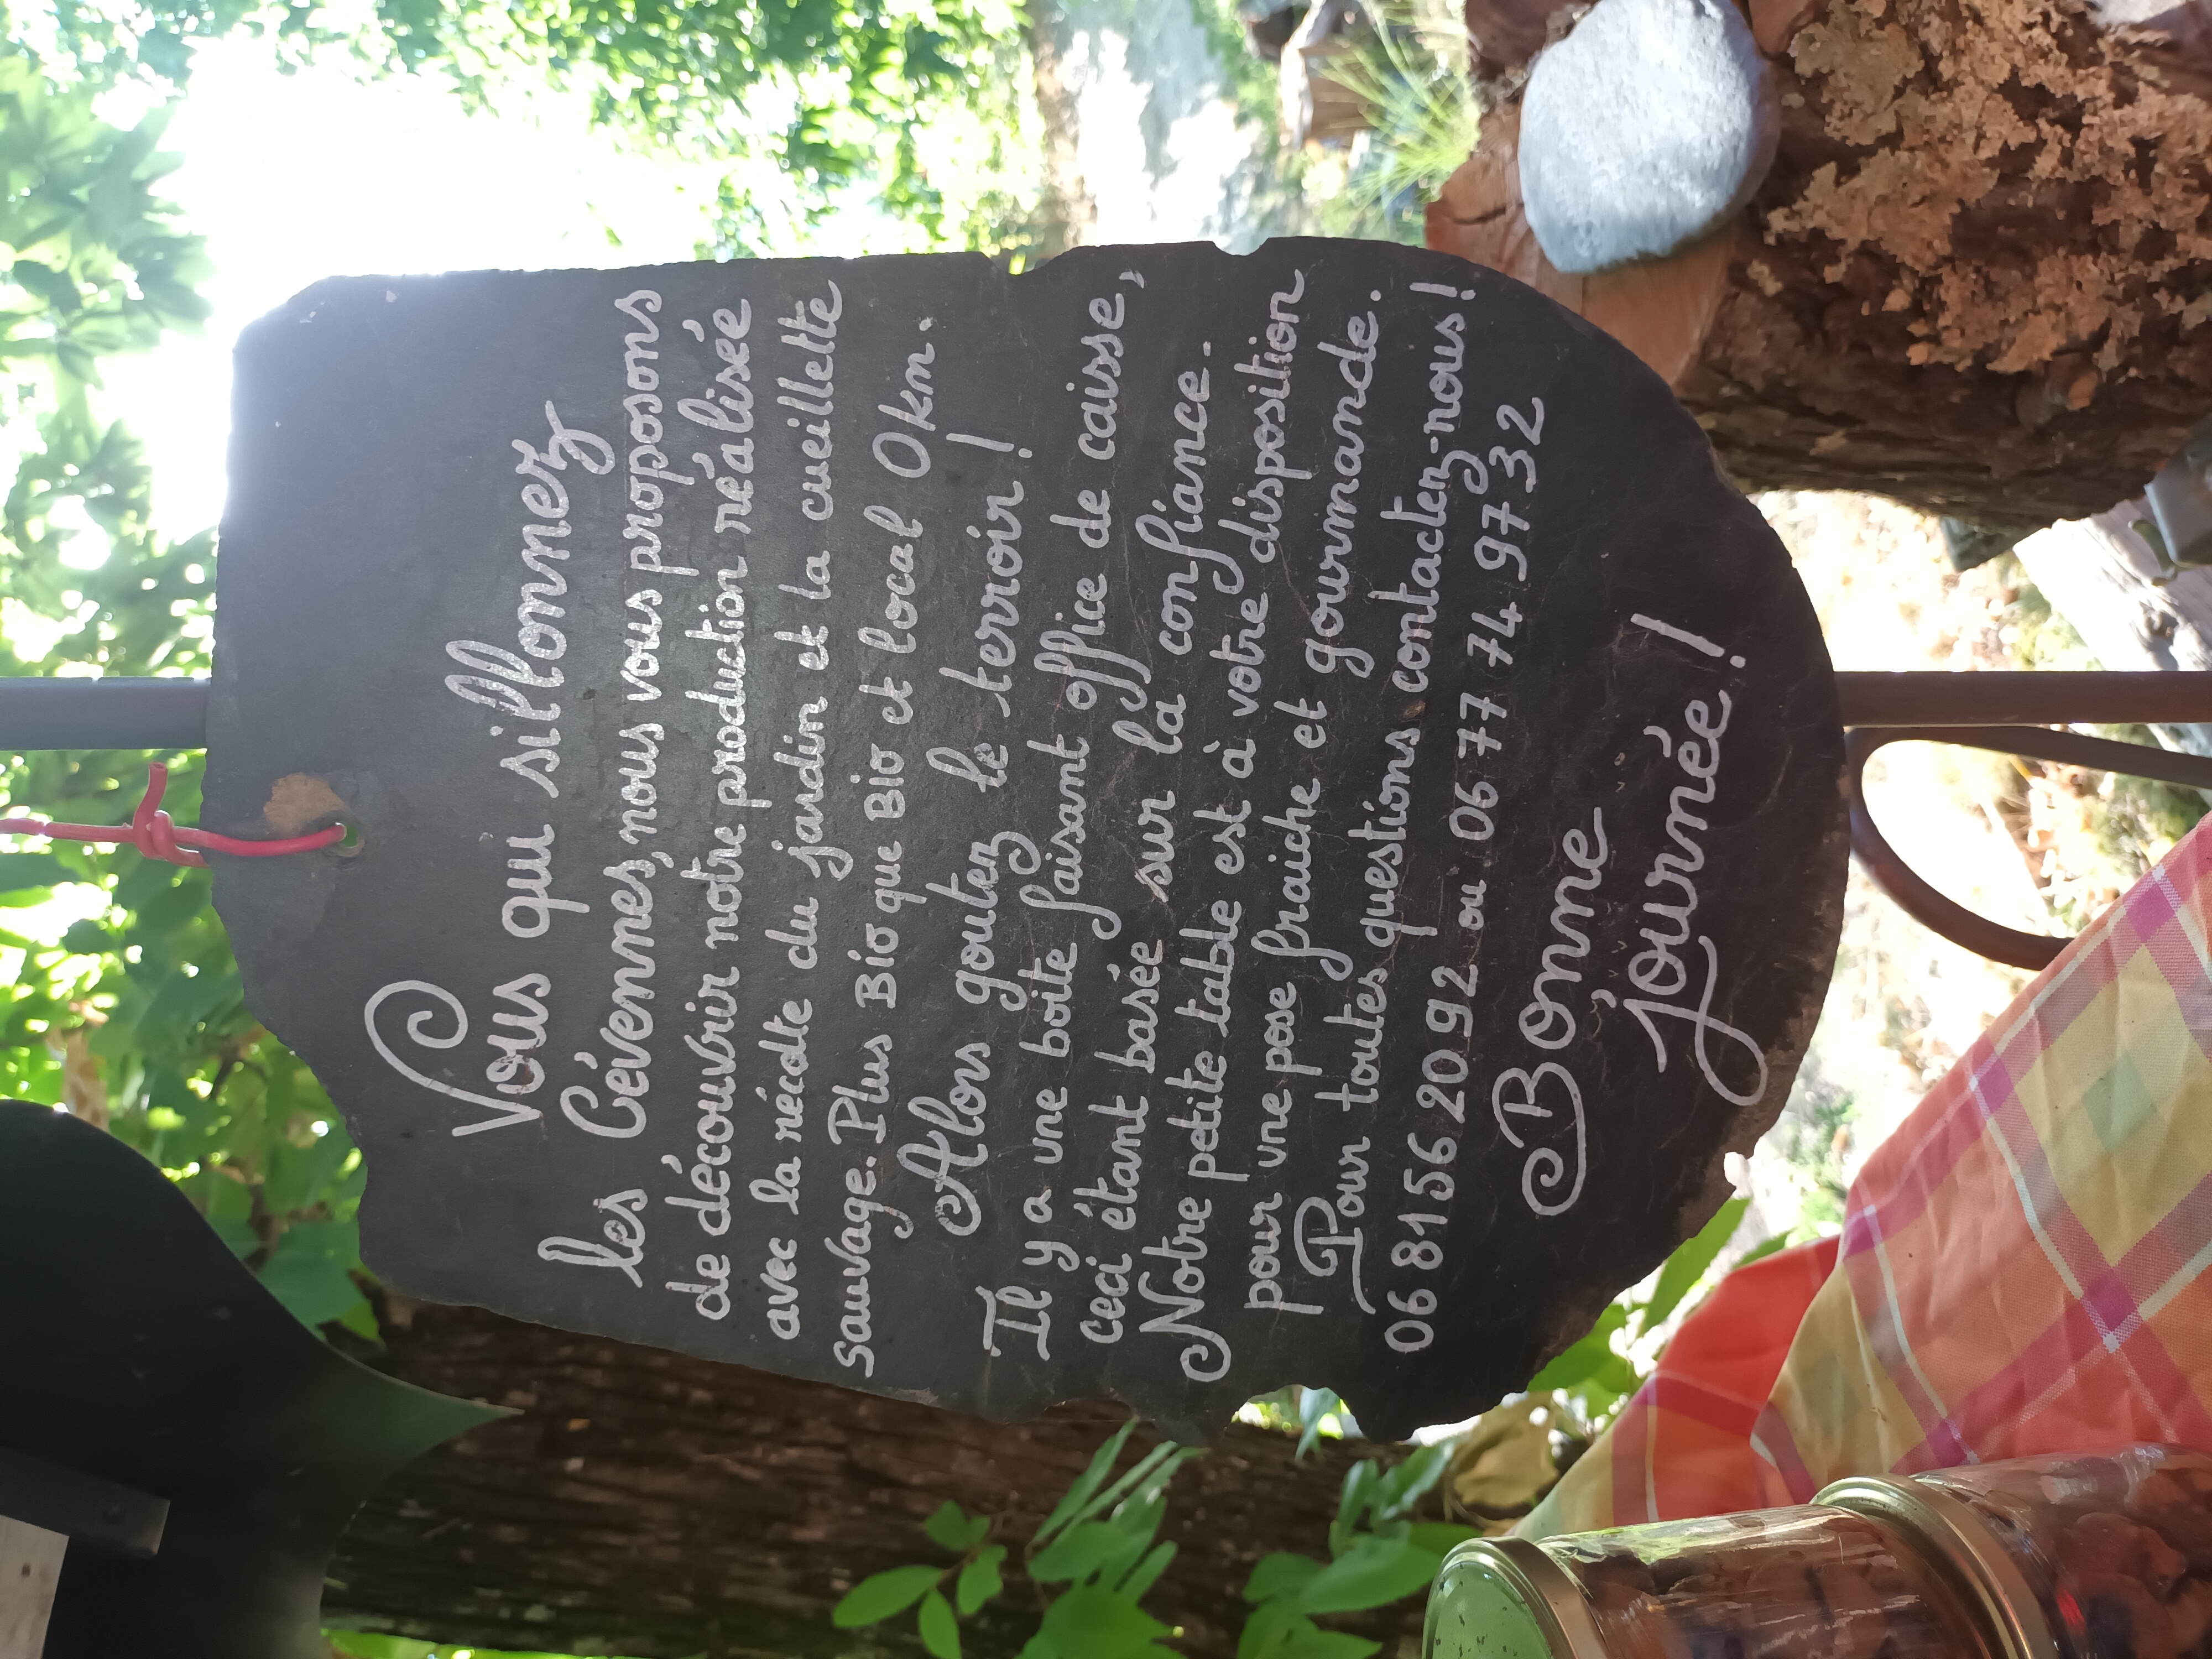 Vous qui sillonnez
les Cévennes, nous vous proposons
de découvrir notre production réalisée
avec la récolte du jardin et la cueillette
sauvage. Plus Bio que Bio et local 0 km.
Alors goutez le terroir !
Il y a une boite faisant office de caisse,
ceci étant basée sur la confiance.
Notre petite table est à votre disposition
pour une pose fraiche et gourmande.
Pour toutes questions contactez-nous !
06 81 56 20 92 ou 06 77 74 97 32
Bonne
journée !